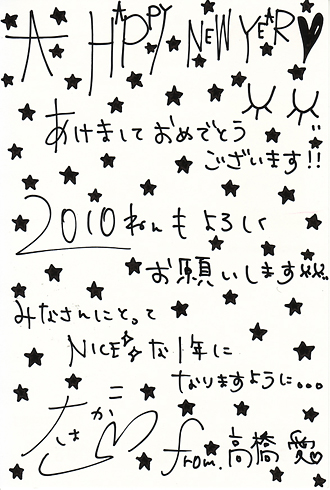 A HAPPY NEW YEAR♥
あけましておめでとう
ございます!!
2010ねんもよろしく
お願いします
みなさんにとって
NICEな1年に
なりますように...
from.高橋愛